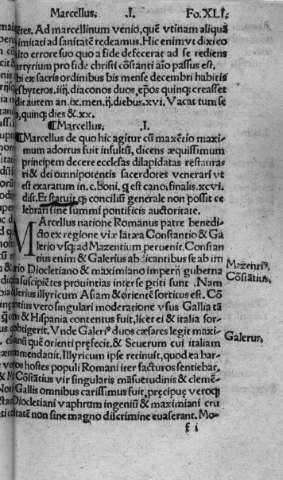 Marcellus. .I. Fo.XLI.
geret. Ad marcellinum venio, quē vtinam aliquā
imitati ad sanitatē redeamus. Hic enim vt dixi co
ito errore suo quo a fide defecerat ad se rediens
artyrium pro fide christi cōstanti aīo passus est.
bi ex sacris ordinibus bis mense decembri habitis
esbyteros .iiij. diaconos duos, epōs quinqꝫ creasset
dit autem an.ix.men.ij.diebus.xvi. Vacat tum se
s, quinqꝫ dies & .xx.
¶Marcellus. .I.
¶Marcellus de quo hic agitur cū maxētio maxi
mum adortus fuit insultū, dicens æquissimum
principem decere ecclesias dilapidatas restauras
ri & dei omnipotentis sacerdotes venerari vt
est exaratum in .c. boni, q̄ est cano, finalis.xcvi.
dis. Et statuit qꝫ concilijs generale non possit ce
lebrari sine summi pontificis auctoritate.
MArcellus natione Romanus patre benedi
cto ex regione via lata a Constantio & Ga
lerio vsqꝫ ad Mazentium peruenit. Constan
tius enim & Galerius abdicantibus se ab im
erio Diocletiano & maximiano imperij guberna
cula suscipiētes prouintias inter se pṙiti sunt. Nam
alerius illyricum Asiam & orientē sortitus est. Cō
antius vero singulari moderatione vsus Gallia tā
um & Hispania contentus fuit, licet ei & italia sor-
obtigerit. Vnde Galeriꝰ duos cæsares legit maxi-
quē orienti præfecit, & Seuerum cui italiam
mmendauit. Illyricum ipse retinuit, quod ea bar-
ros hostes populi Romani iter facturos sentiebat,
Cōstātius vir singularis māsuetudinis & clemē-
Gallis omnibus carissimus fuit, præcipue veroqꝫ
Diocletiani vaphrum ingeniū & maximiani cru
tatem non sine magno discrimine euaserant. Mo-
f i
Mazenti⁹
Cōstātius,
Galerus,